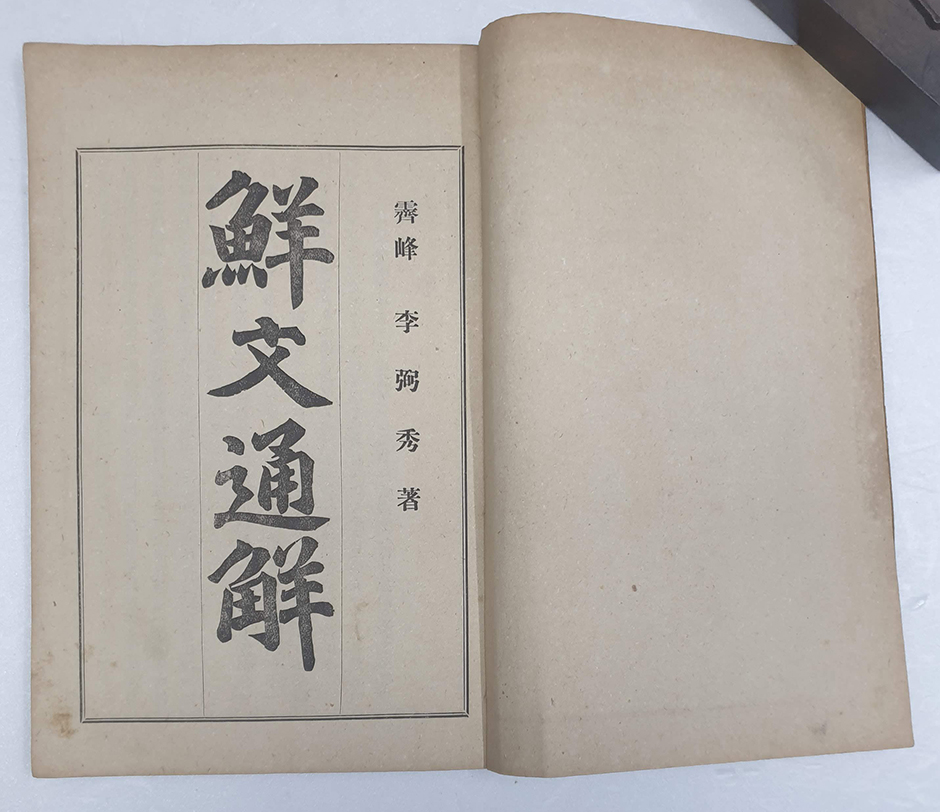 霽峰 李弼秀 著
鮮文通觧